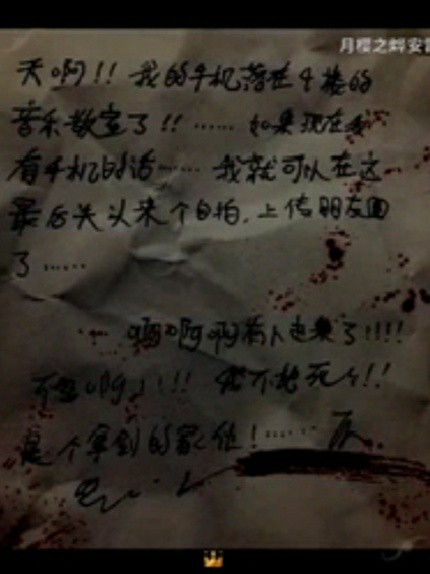 月樱之畔安
天啊!! 我的手机落在4楼的
音乐教室了!! …… 如果现在我
有手机的话…… 我就可以在这
最后关头来个自拍,上传朋友圈
了……
啊啊啊有人也来了!!!!
不要啊!!!! 我不想死!!
是个拿到的家伙!……